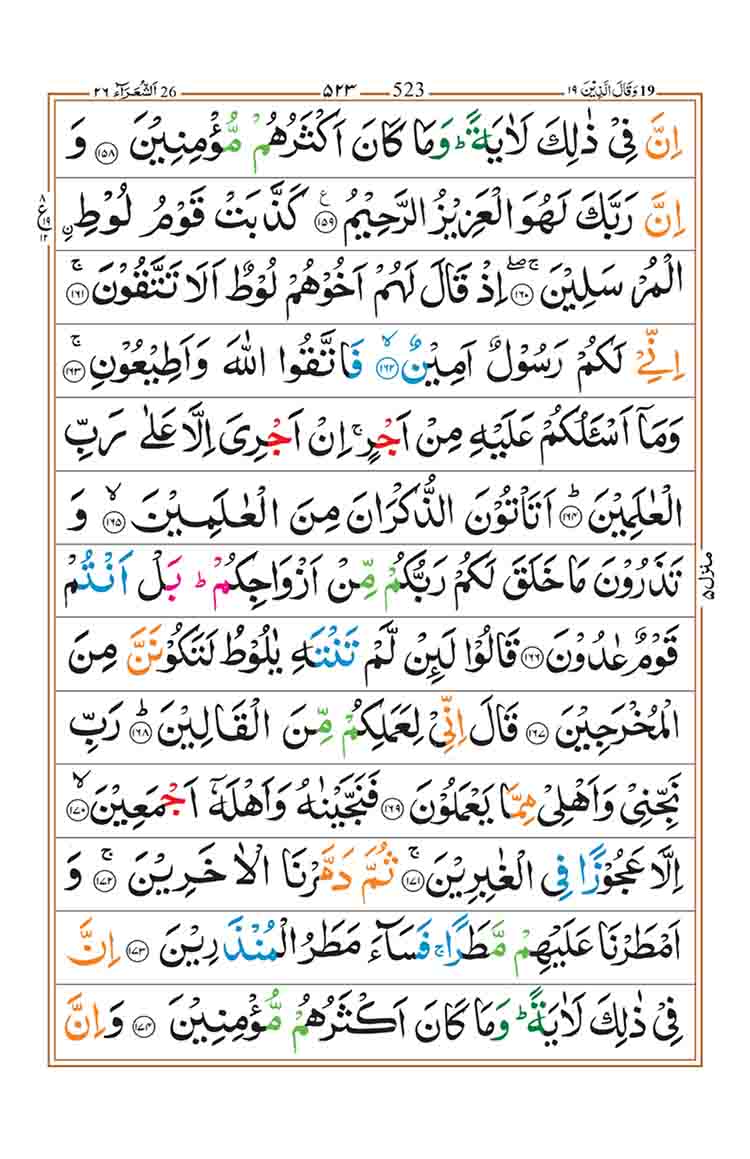 19 وَقَالَ الَّذِيْنَ ١٩ 523 ۵۲۳ 26 اَلشُّعَرَآء ٢٦
اِنَّ فِىْ ذٰلِكَ لَاٰيَةً ؕ وَمَا كَانَ اَكْثَرُهُمْ مُّؤْمِنِيْنَ ﴿۱۵۸﴾ وَ
اِنَّ رَبَّكَ لَهُوَ الْعَزِيْزُ الرَّحِيْمُ ﴿۱۵۹﴾ ع كَذَّبَتْ قَوْمُ لُوْطِ ۨ
الْمُرْسَلِيْنَ ﴿۱۶۰﴾ ۖۚ اِذْ قَالَ لَهُمْ اَخُوْهُمْ لُوْطٌ اَلَا تَتَّقُوْنَ ﴿۱۶۱﴾ ۚ
اِنِّىْ لَكُمْ رَسُوْلٌ اَمِيْنٌ ﴿۱۶۲﴾ ۙ فَاتَّقُوا اللّٰهَ وَاَطِيْعُوْنِ ﴿۱۶۳﴾ ۚ
وَمَاۤ اَسْئَلُكُمْ عَلَيْهِ مِنْ اَجْرٍ ۚ اِنْ اَجْرِىَ اِلَّا عَلٰى رَبِّ
الْعٰلَمِيْنَ ﴿۱۶۴﴾ ؕ اَتَاْتُوْنَ الذُّكْرَانَ مِنَ الْعٰلَمِيْنَ ﴿۱۶۵﴾ ۙ وَ
تَذَرُوْنَ مَا خَلَقَ لَكُمْ رَبُّكُمْ مِّنْ اَزْوَاجِكُمْ ؕ بَلْ اَنْتُمْ
قَوْمٌ عٰدُوْنَ ﴿۱۶۶﴾ قَالُوْا لَئِنْ لَّمْ تَنْتَهِ يٰلُوْطُ لَتَكُوْنَنَّ مِنَ
الْمُخْرَجِيْنَ ﴿۱۶۷﴾ قَالَ اِنِّىْ لِعَمَلِكُمْ مِّنَ الْقَالِيْنَ ﴿۱۶۸﴾ ؕ رَبِّ
نَجِّنِىْ وَاَهْلِىْ مِمَّا يَعْمَلُوْنَ ﴿۱۶۹﴾ فَنَجَّيْنٰهُ وَاَهْلَهٗۤ اَجْمَعِيْنَ ﴿۱۷۰﴾ ۙ
اِلَّا عَجُوْزًا فِى الْغٰبِرِيْنَ ﴿۱۷۱﴾ ۚ ثُمَّ دَمَّرْنَا الْاٰخَرِيْنَ ﴿۱۷۲﴾ ۚ وَ
اَمْطَرْنَا عَلَيْهِمْ مَّطَرًا ۚ فَسَآءَ مَطَرُ الْمُنْذَرِيْنَ ﴿۱۷۳﴾ اِنَّ
فِىْ ذٰلِكَ لَاٰيَةً ؕ وَمَا كَانَ اَكْثَرُهُمْ مُّؤْمِنِيْنَ ﴿۱۷۴﴾ وَاِنَّ
٨
ع
١٩
١٢
منزل ۵